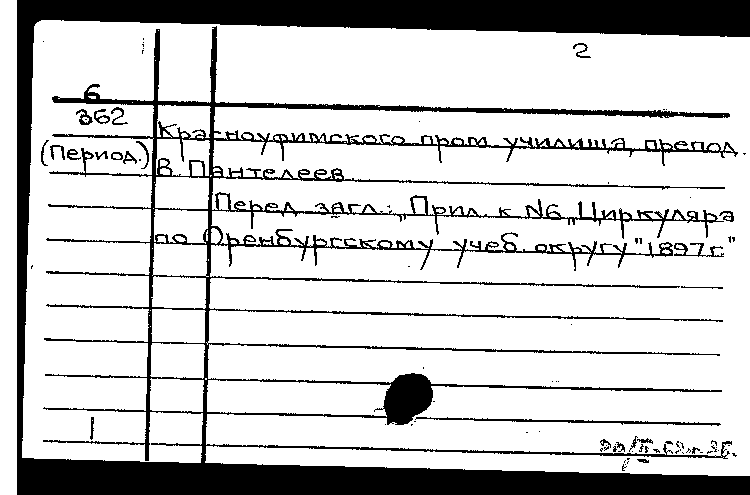 2
6
362
Красноуфимского пром. училища, препод.
(Период.) В. Пантелеев.
Перед загл.: „Прил. к №6 „Циркуляра
по Оренбургскому учеб. округу" 1897 г."